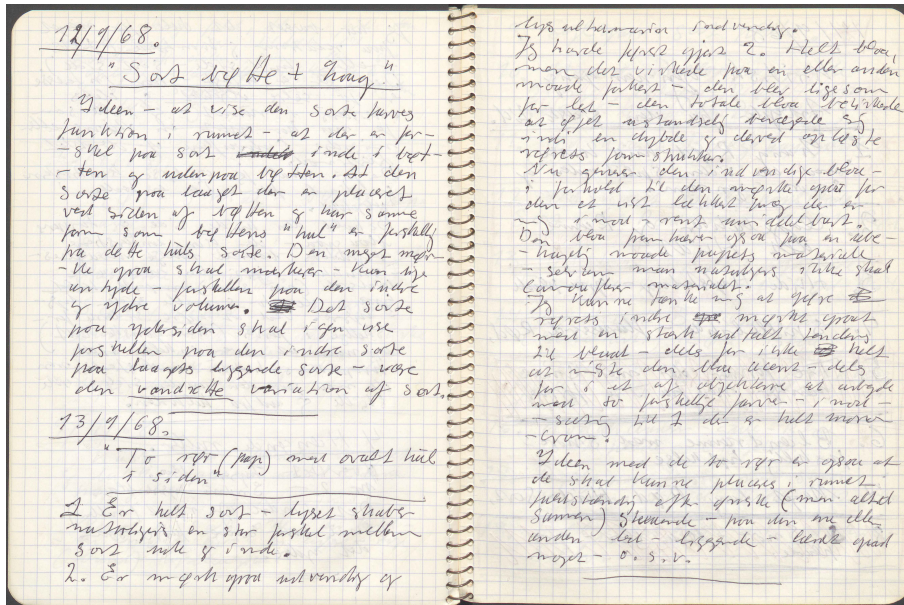 12/9/68.
"Sort bøtte + laag"
Ideen - at vise den sorte farves
funktion i rummet - at der er for-
-skel paa sort inde i bøt-
-ten og udenpaa bøtten. At den
sorte paa laaget der er placeret
ved siden af bøtten og har samme
form som bøttens "hul" er forskellig
fra dette huls sorte. Den meget mør-
-ke graa skal markere - kun lige
antyde - forskellen paa den indre
og ydre volumen. Det sorte
paa ydersiden skal igen vise
forskellen paa den indre sorte
paa laagets liggende sorte - være
den vandrette variation af sort.
13/9/68.
"To rør (pap) med ovalt hul
i siden"
1 Er helt sort - lyset skaber
naturligvis en stor forskel mellem
sort ude og inde.
2. Er mørk graa udvendig og
lys ultramarin indvendig.
Jeg havde først gjort 2. Helt blaa,
men det virkede paa en eller anden
maade forkert - den blev ligesom
for let - den totale blaa bevirkede
at øjet ustandselig bevægede sig
ind i en dybde og derved opløste
rørets form struktur.
Nu generer den indvendige blaa -
i forhold til den mørke graa for
den et vist lækkert præg der er
mig imod - rent umiddelbart.
Den blaa fremhæver ogsaa paa en ube-
-hagelig maade papets materiale
- selvom man naturligvis ikke skal
camouflere materialet.
Jeg kunne tænke mig at gøre
rørets indre mørkt graat
med en stærk udtalt tendens
til blaat - dels for ikke helt
at miste den blaa accent - dels
for i et af objekterne at arbejde
med to forskellige farver - i mod-
-sætning til 1 der er helt mono-
-crom.
Ideen med de to rør er ogsaa at
de skal kunne placeres i rummet
fuldstændig efter ønske (men altid
sammen) Staaende - paa den ene eller
anden led - liggende - lænet opad
noget - o.s.v.